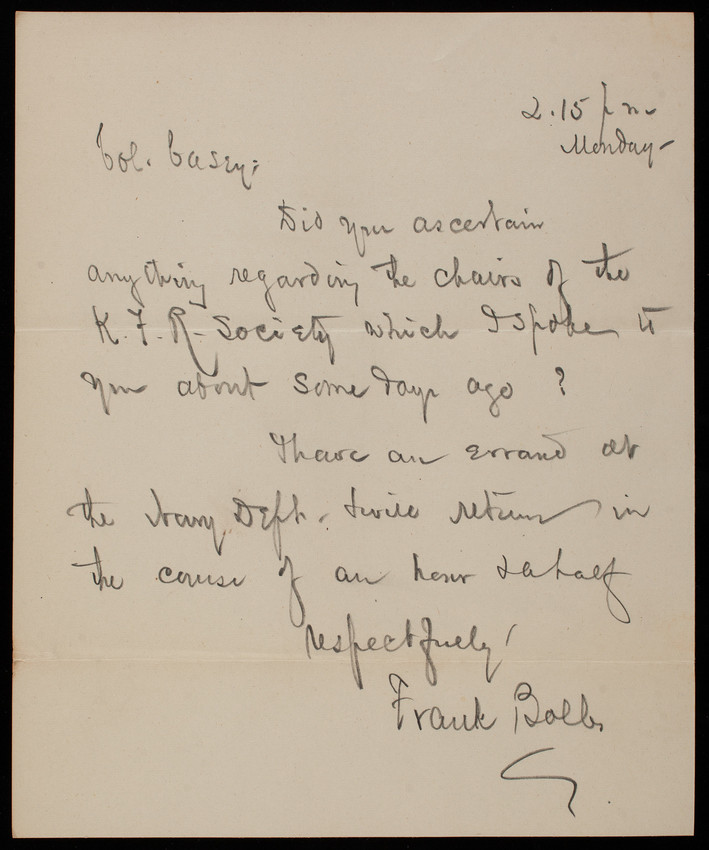 2.15 p m
Monday -
Col. Casey:
Did you ascertain
anything regarding the chairs of the
K. F. R. Society which I spoke to
you about some days ago ?
I have an errand at
the Navy Dept. & will return in
the course of an hour & a half
respectfully,
Frank Bolles